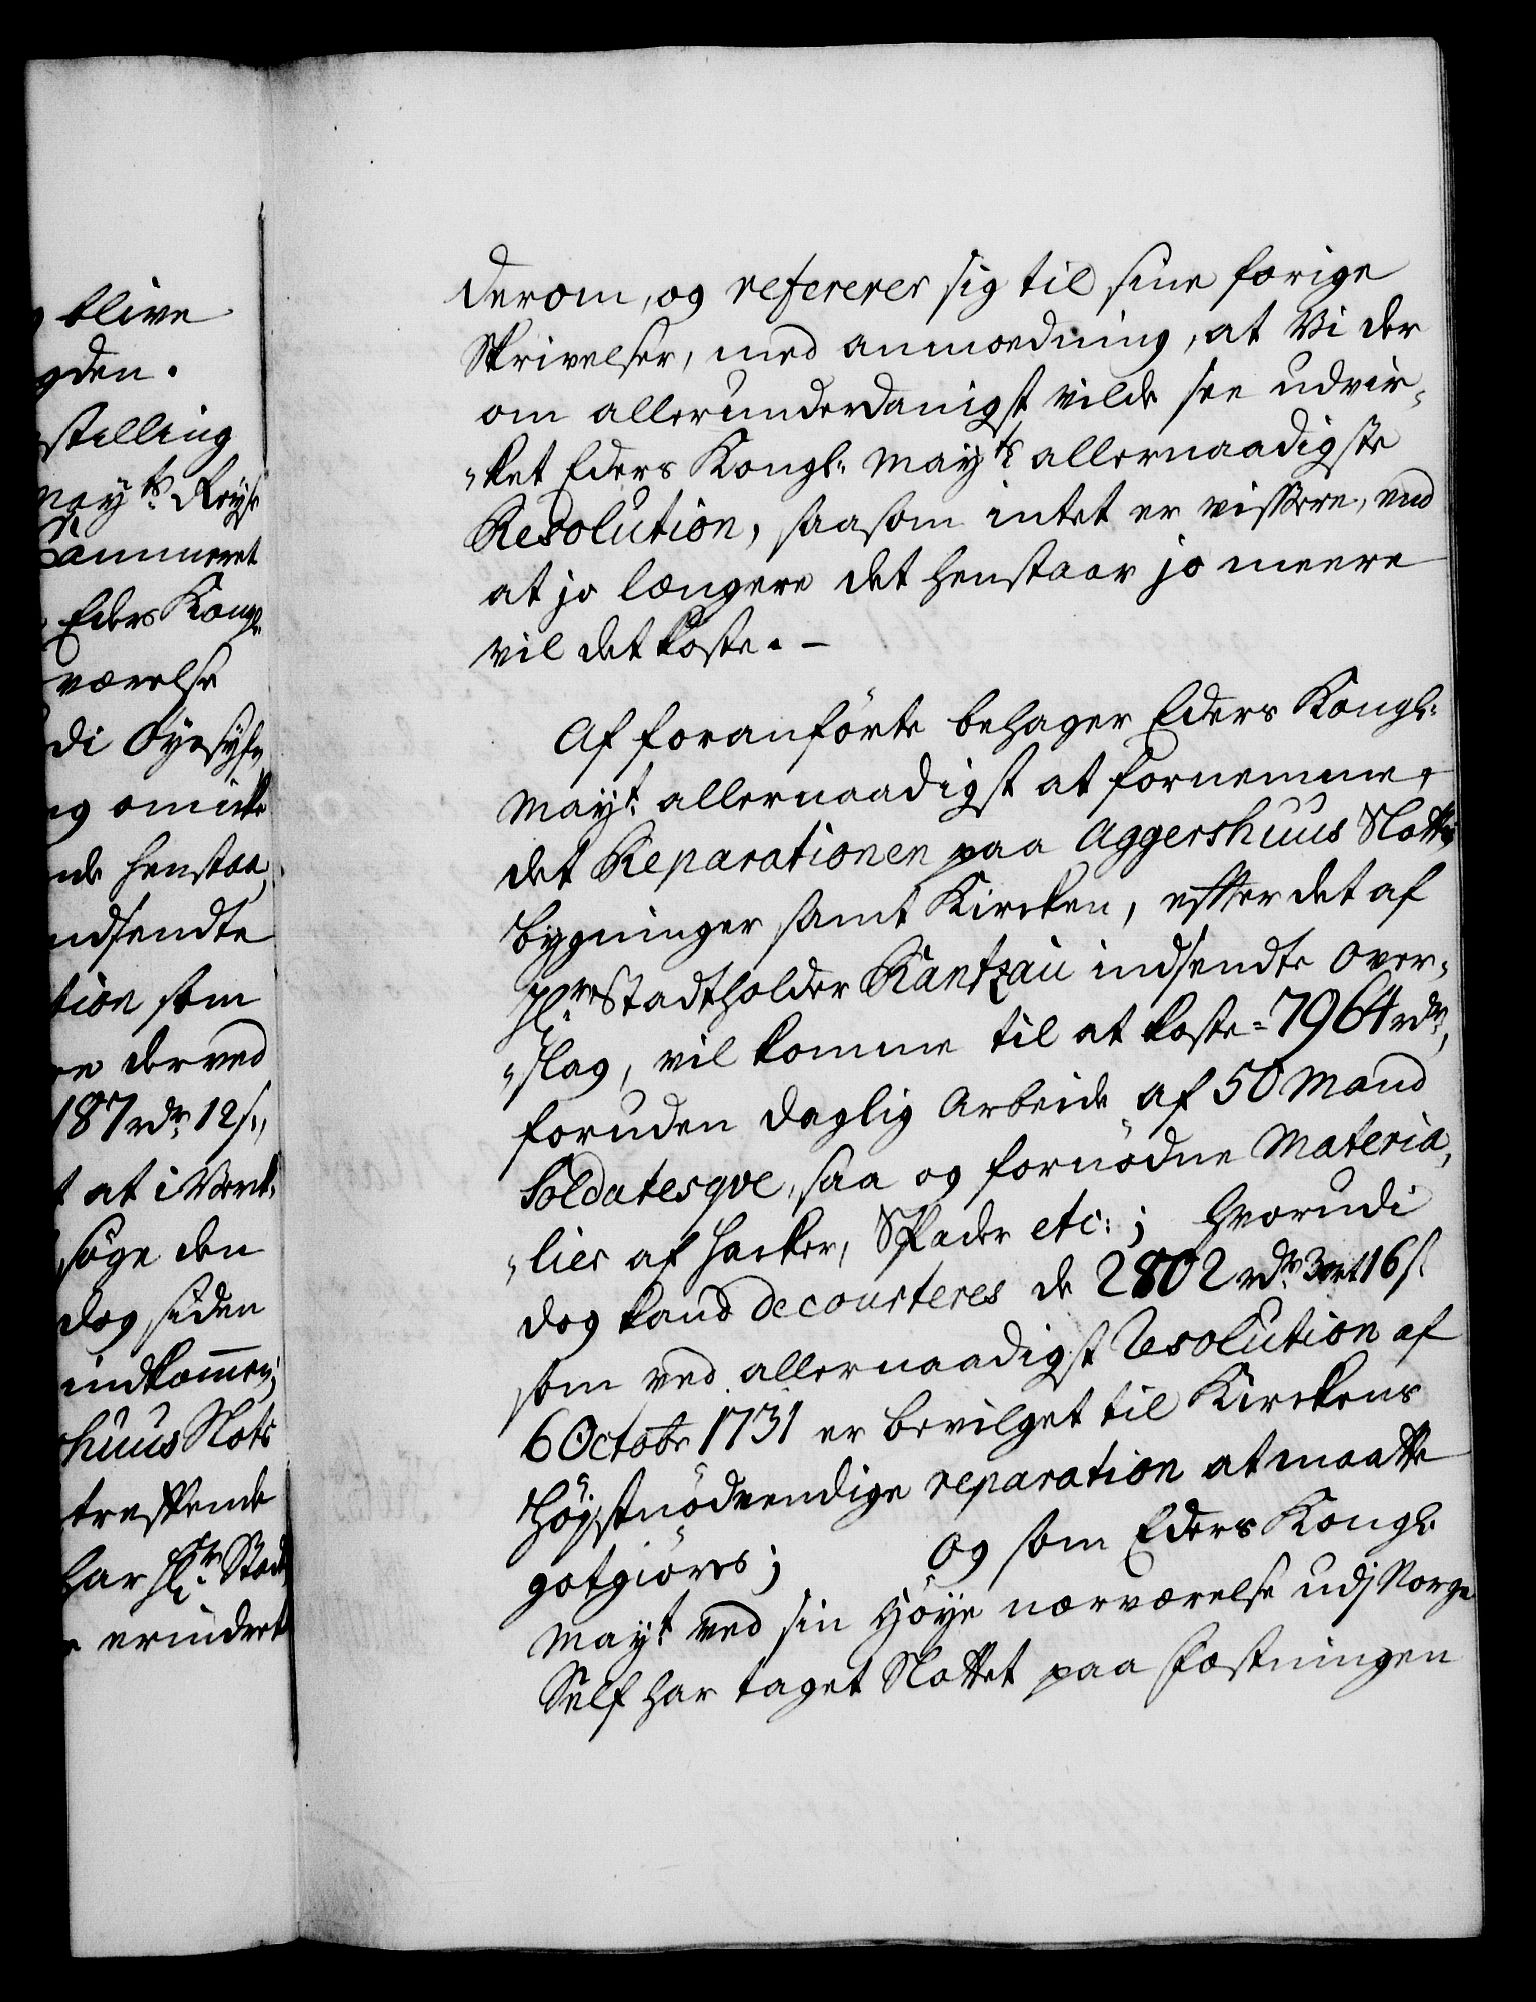 blive
gden.
stilling
mayts Reyse
Cammeret
Eders Kongl:
værelse
di Øyesyhn
nde henstaa,
indsendte
tion som
derved
187 rdr 12 s.,
at i Værk,
søge den
dog siden
indkommen;
huus Slots
treffende
har Hr: Stad,
erindret
derom, og refererer sig til sine forige
Skrivelser, med anmodning, at Vi der
om allerunderdanigst vilde see udvir,,
,,ket Eders Kongl: Mayts allernaadigste
Resolution, saasom intet er vissere, end
at jo længere det henstaar jo meere
vil det koste. –
Af foranförte behager Eders Kongl:
Mayt: allernaadigst at fornemme,
det Reparationen paa Aggershuus Slotts
bygninger samt Kirken, efter det af
Hr: Stadtholder Rantzau indsendte Over,,
,,slag, vil komme til at koste = 7964 rdr,
foruden daglig Arbeide af 50 Mand
Soldatesqve, saa og fornødne Materia,,
,,lier af Hacker, Spader etc:; hvorudi
dog kand decourteres de 2802 rdr 3 ort 16 s.
som ved allernaadigst Resolution af
6 Octobr 1731 er bevilget til Kirkens
Høystnödvendige reparation at maatte
gotgiöres; Og som Eders Kongl:
Mayt: ved sin Höye nærværelse udj Norge
Self har taget Slottet paa Fæstningen